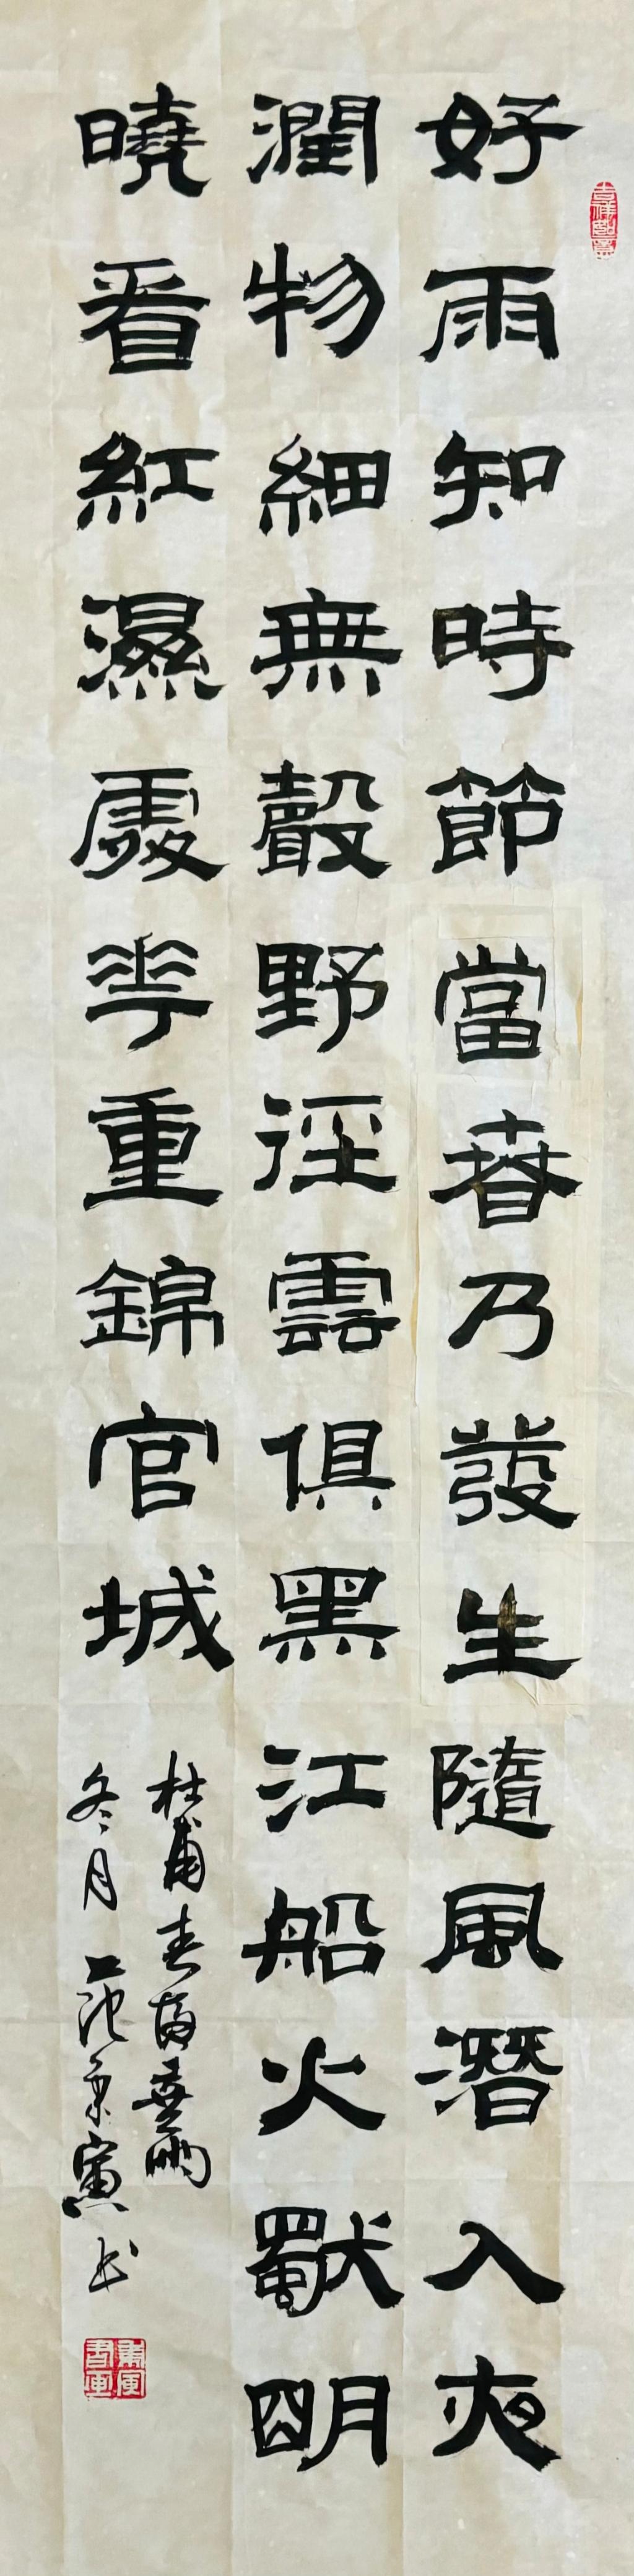 好雨知時節當春乃發生隨風潛入夜
潤物細無聲野徑雲俱黑江船火獨明
曉看紅濕處花重錦官城
杜甫春夜喜雨
冬月 范秉寅书